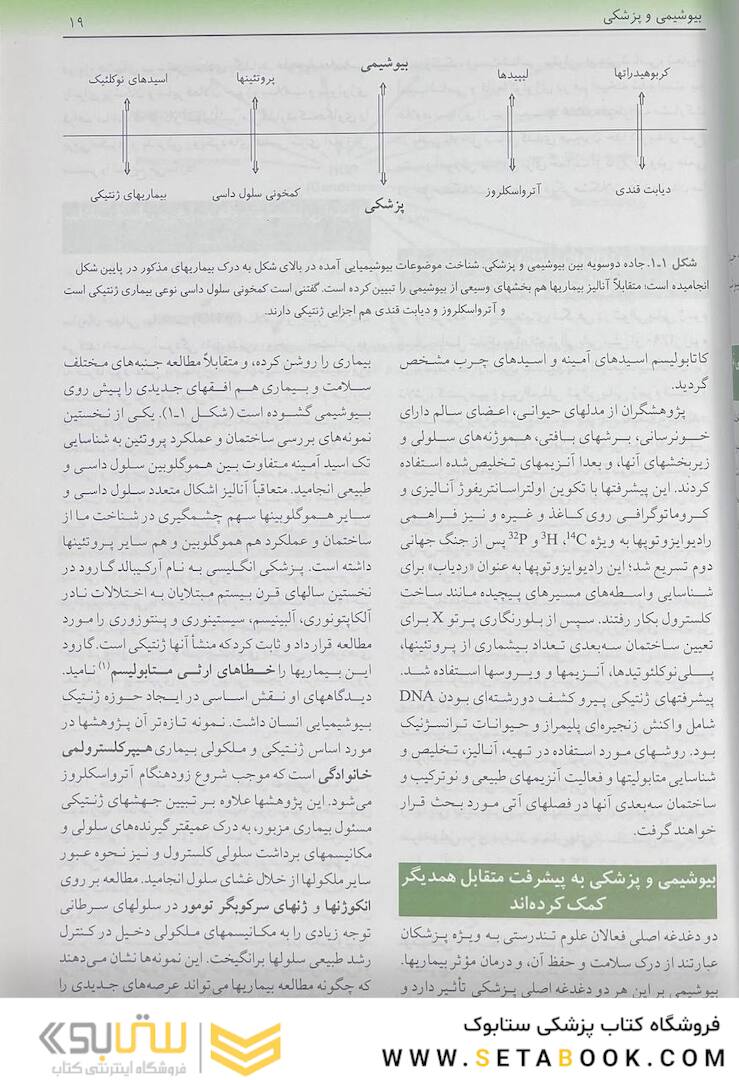 بیوشیمی و پزشکی
۱۹
کربوهیدراتها
لیپیدها
بیوشیمی
پروتئینها
اسیدهای نوکلئیک
دیابت قندی
آترواسکلروز
پزشکی
کمخونی سلول داسی
بیماریهای ژنتیکی
شکل ۱-۱. جاده دوسویه بین بیوشیمی و پزشکی. شناخت موضوعات بیوشیمیایی آمده در بالای شکل به درک بیماریهای مذکور در پایین شکل
انجامیده است؛ متقابلاً آنالیز بیماریها هم بخشهای وسیعی از بیوشیمی را تبیین کرده است. گفتنی است کمخونی سلول داسی نوعی بیماری ژنتیکی است
و آترواسکلروز و دیابت قندی هم اجزایی ژنتیکی دارند.
کاتابولیسم اسیدهای آمینه و اسیدهای چرب مشخص
گردید.
پژوهشگران از مدلهای حیوانی، اعضای سالم دارای
خونرسانی، برشهای بافتی، هموژنه‌های سلولی و
زیربخشهای آنها، و بعدا آنزیمهای تخلیص‌شده استفاده
کردند. این پیشرفتها با تکوین اولتراسانتریفوژ آنالیزی و
کروماتوگرافی روی کاغذ و غیره و نیز فراهمی
رادیوایزوتوپها به ویژه ¹⁴C، ³H و ³²P پس از جنگ جهانی
دوم تسریع شد؛ این رادیوایزوتوپها به عنوان «ردیاب» برای
شناسایی واسطه‌های مسیرهای پیچیده مانند ساخت
کلسترول بکار رفتند. سپس از بلورنگاری پرتو X برای
تعیین ساختمان سه‌بعدی تعداد بیشماری از پروتئینها،
پلی‌نوکلئوتیدها، آنزیمها و ویروسها استفاده شد.
پیشرفتهای ژنتیکی پیرو کشف دورشته‌ای بودن DNA
شامل واکنش زنجیره‌ای پلیمراز و حیوانات ترانسژنیک
بود. روشهای مورد استفاده در تهیه، آنالیز، تخلیص و
شناسایی متابولیتها و فعالیت آنزیمهای طبیعی و نوترکیب و
ساختمان سه‌بعدی آنها در فصلهای آتی مورد بحث قرار
خواهند گرفت.
بیوشیمی و پزشکی به پیشرفت متقابل همدیگر
کمک کرده‌اند
دو دغدغه اصلی فعالان علوم تندرستی به ویژه پزشکان
عبارتند از درک سلامت و حفظ آن، و درمان مؤثر بیماریها.
بیوشیمی بر این هر دو دغدغه اصلی پزشکی تأثیر دارد و
بیماری را روشن کرده، و متقابلاً مطالعه جنبه‌های مختلف
سلامت و بیماری هم افقهای جدیدی را پیش روی
بیوشیمی گشوده است (شکل ۱-۱). یکی از نخستین
نمونه‌های بررسی ساختمان و عملکرد پروتئین به شناسایی
تک اسید آمینه متفاوت بین هموگلوبین سلول داسی و
طبیعی انجامید. متعاقباً آنالیز اشکال متعدد سلول داسی و
سایر هموگلوبینها سهم چشمگیری در شناخت ما از
ساختمان و عملکرد هم هموگلوبین و هم سایر پروتئینها
داشته است. پزشکی انگلیسی به نام آرکیبالد گارود در
نخستین سالهای قرن بیستم مبتلایان به اختلالات نادر
آلکاپتونوری، آلبینیسم، سیستینوری و پنتوزوری را مورد
مطالعه قرار داد و ثابت کرد که منشأ آنها ژنتیکی است. گارود
این بیماریها را خطاهای ارثی متابولیسم(۱) نامید.
دیدگاههای او نقش اساسی در ایجاد حوزه ژنتیک
بیوشیمیایی انسان داشت. نمونه تازه‌تر آن پژوهشها در
مورد اساس ژنتیکی و ملکولی بیماری هیپرکلسترولمی
خانوادگی است که موجب شروع زودهنگام آترواسکلروز
می‌شود. این پژوهشها علاوه بر تبیین جهشهای ژنتیکی
مسئول بیماری مزبور، به درک عمیقتر گیرنده‌های سلولی و
مکانیسمهای برداشت سلولی کلسترول و نیز نحوه عبور
سایر ملکولها از خلال غشای سلول انجامید. مطالعه بر روی
انکوژنها و ژنهای سرکوبگر تومور در سلولهای سرطانی
توجه زیادی را به مکانیسمهای ملکولی دخیل در کنترل
رشد طبیعی سلولها برانگیخت. این نمونه‌ها نشان می‌دهند
که چگونه مطالعه بیماریها می‌تواند عرصه‌های جدیدی را
فروشگاه کتاب پزشکی ستابوک
WWW.SETABOOK.COM
ستابوک
فروشگاه اینترنتی کتاب